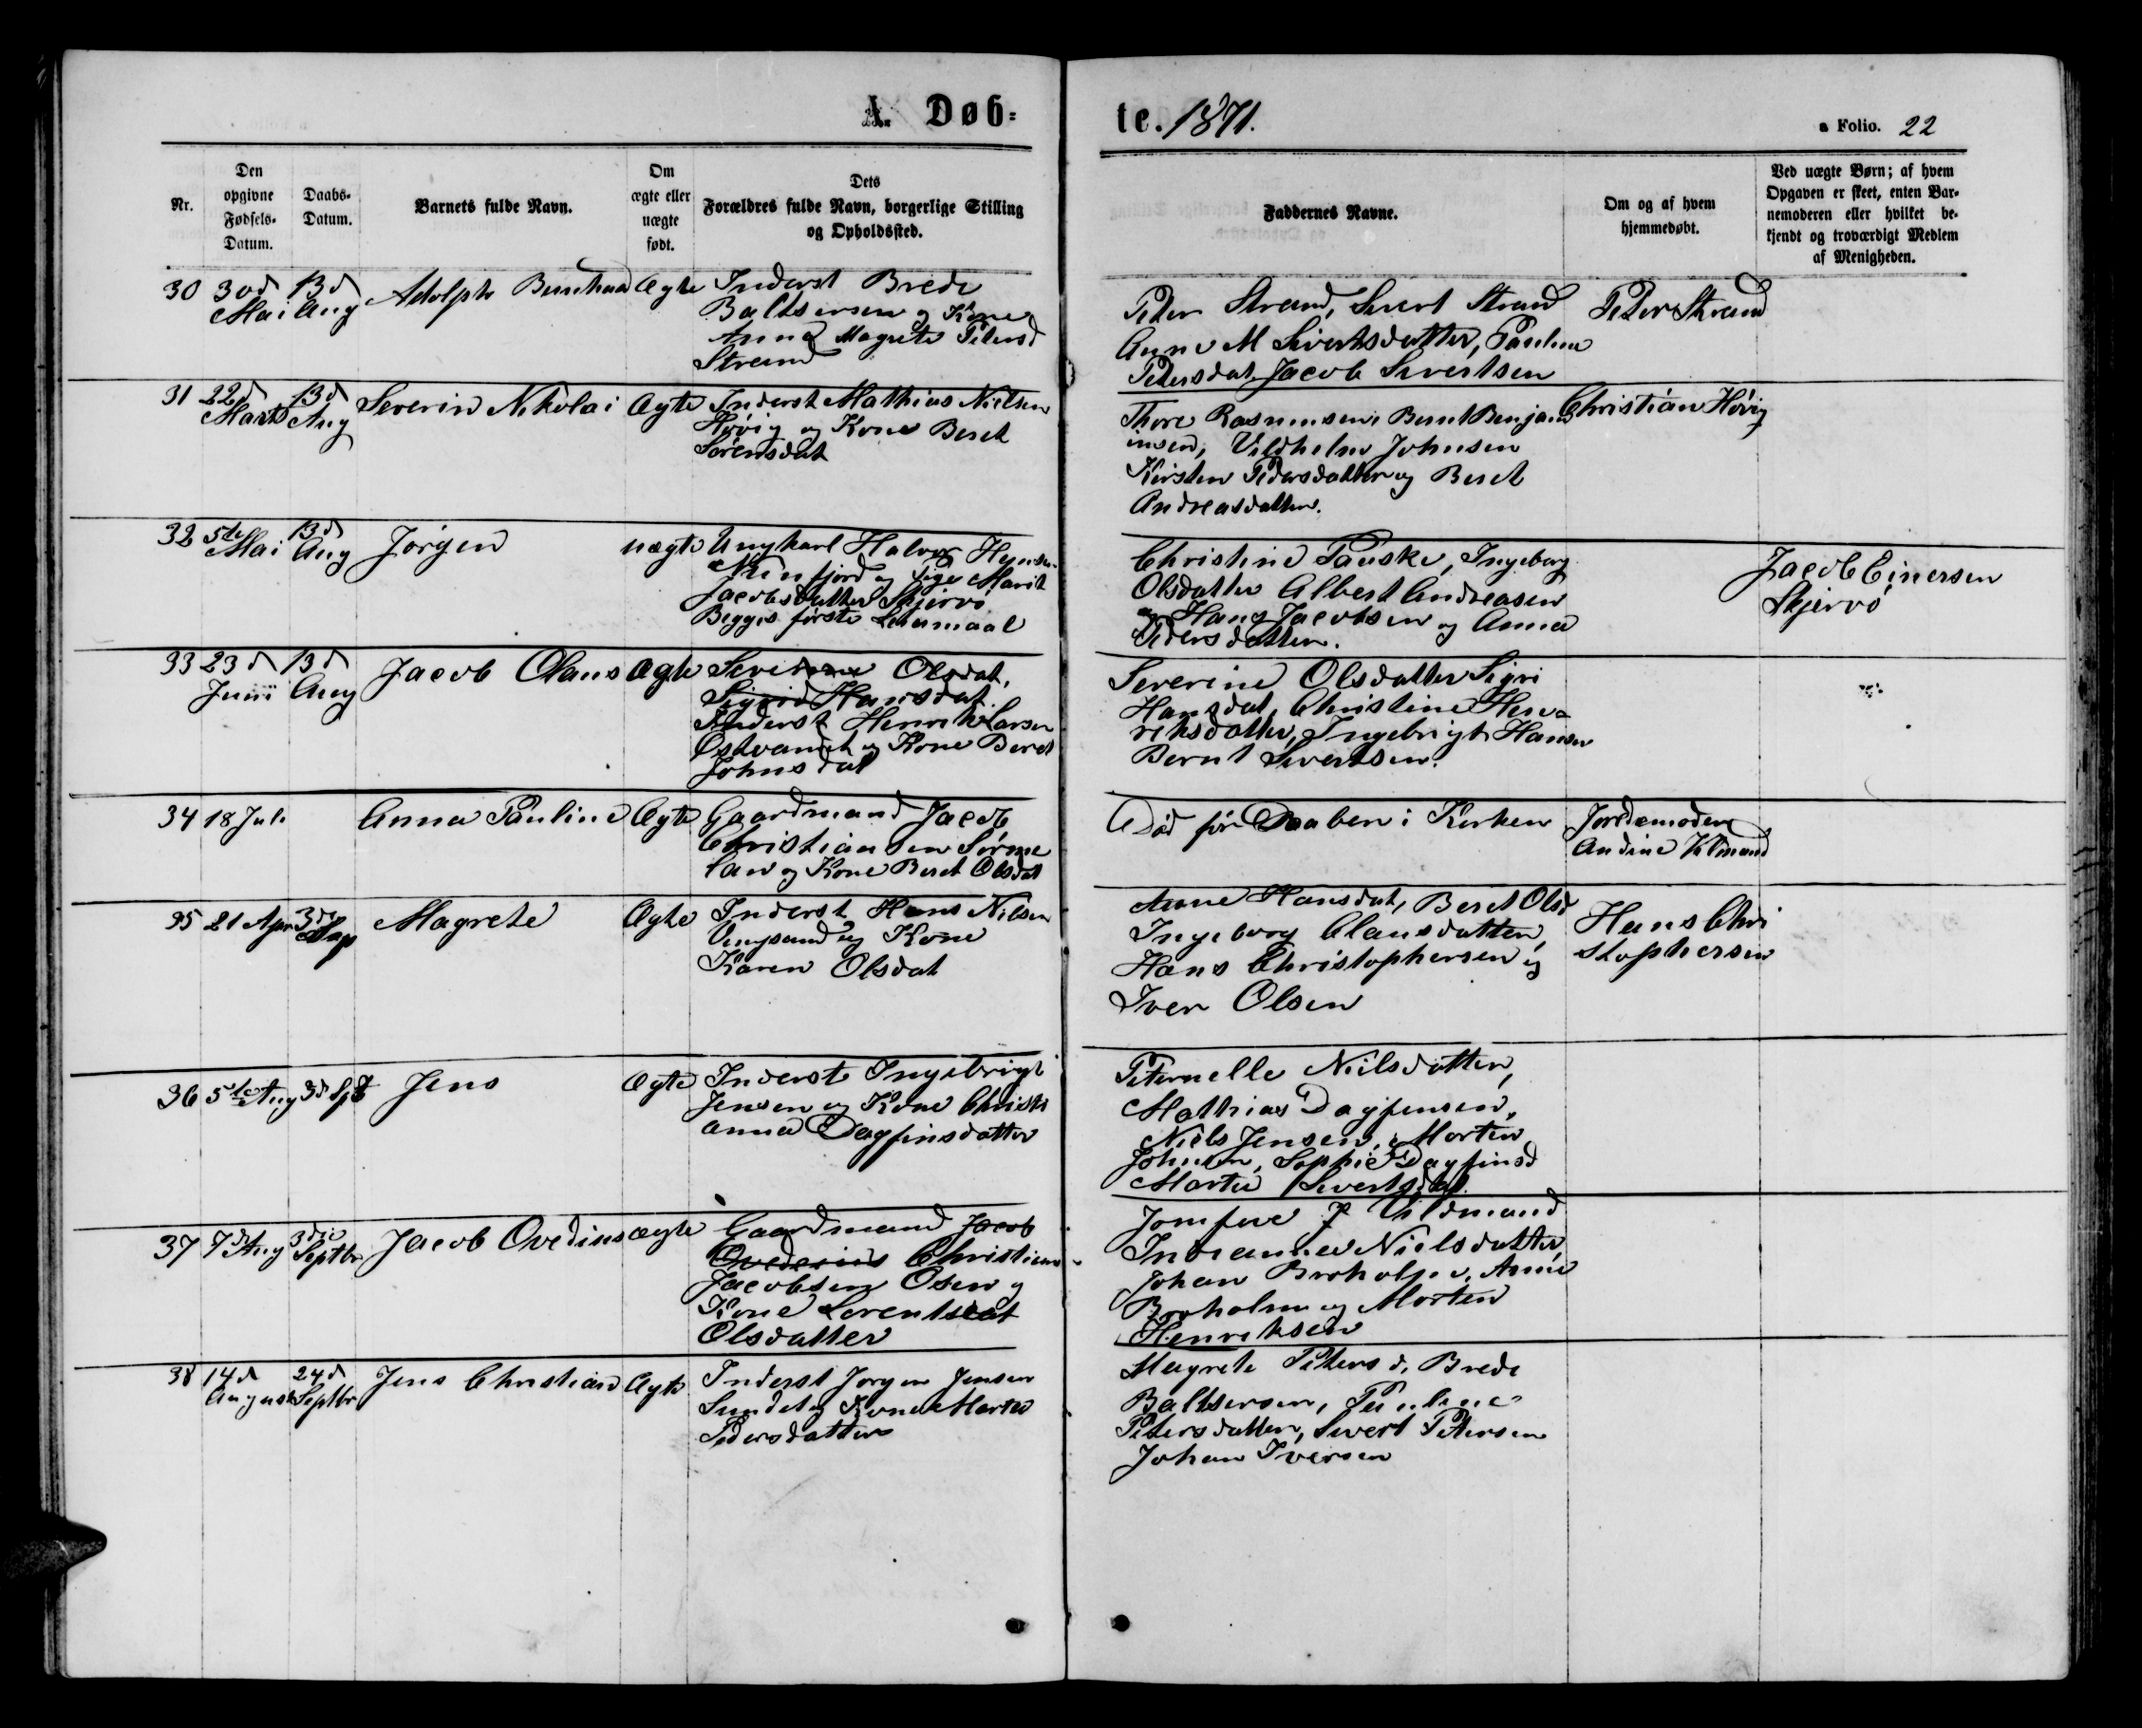 A. Døb=
te. 1871.
Folio. 22
Nr.
Den opgivne Fødsels-Datum.
Daabs-Datum.
Barnets fulde Navn.
Om ægte eller uægte født.
Dets Forældres fulde Navn, borgerlige Stilling og Opholdssted.
Faddernes Navne.
Om og af hvem hjemmedøbt.
Ved uægte Børn; af hvem Opgaven er skeet, enten Barnemoderen eller hvilket bekjendt og troværdigt Medlem af Menigheden.
30 30d Mai 13d Aug Adolph Ægte Inderst Brede
Baltsersen og Kone
Anna Magrete Petersd
Strand
Peter Strand, Sivert Strand
Anne M Sivertsdatter, Pauline
Petersdat, Jacob Sivertsen
Peter Strand
31 22d Marts 13d Aug Severin Nikolai Ægte Inderst Mathias Nielsen
Høvig og Kone Beret
Sørensdat
Thore Rasmussen, Bernt Benjam
insen, Vildhelm Johnsen
Kirsten Pedersdatter og Beret
Andreasdatter.
Christian Høvig
32 5te Mai 13d Aug Jørgen uægte Ungkarl Halvor
og Pige Marit
Jacobsdatter Skjervø
Begges første Leiermaal
Christine Pauske, Ingeborg
Olsdatter Albert Andreasen
og Hans Jacobsen og Anna
Pedersdatter.
Jacob Einersen
Skjervø
33 23d Juni 13d Aug Jacob Olaus Ægte Severine Olsdat,
Sigrid Hansdat
Inderst Henrik Larsen
Østvandet og Kone Beret
Johnsdat
Severine Olsdatter Sigri
Hansdat, Christine Hen=
riksdatter, Ingebrigt Hansen
Bernt Sivertsen.
34 18 Juli Anna Pauline Ægte Gaardmand Jacob
Christiansen Sørme
land og Kone Beret Olsdat
Død før Daaben i Kirken
Jordemoderen
Andine
35 21 Apr 3die Sep Magrete Ægte Inderst Hans Nilsen
Vingsand og Kone
Karen Olsdat
Anne Hansdat, Beret Olsd
Ingeborg Clausdatter,
Hans Christophersen og
Iver Olsen
Hans Chri
stophersen
36 5te Aug 3d Spt Jens Ægte Inderst Ingebrigt
Jensen og Kone Christi
anna Dagfinsdatter
Peternelle Nilsdatter,
Mathias Dagfensen,
Niels Jensen, Morten
Johnsen, Sophie Dagfinsd
Marte Sivertsdat.
37 7d Aug 3die Septbr Jacob Ovedius ægte Gaardmand Jacob
Ovedius Christian
Jacobsen Osen og
Kone Lorentseat
Olsdatter
Jomfrue J Vildmand
Indianna Nielsdatter,
Johan Broholm, Anne
Broholm og Morten
Henriksen
38 14d August 24d Septbr Jens Christian Ægte Inderst Jørgen Jensen
Sundet og Kone Marta
Pedersdatter
Magrete Petersd, Brede
Baltsersen, Pauline
Petersdatter, Sivert Petersen
Johan Iversen